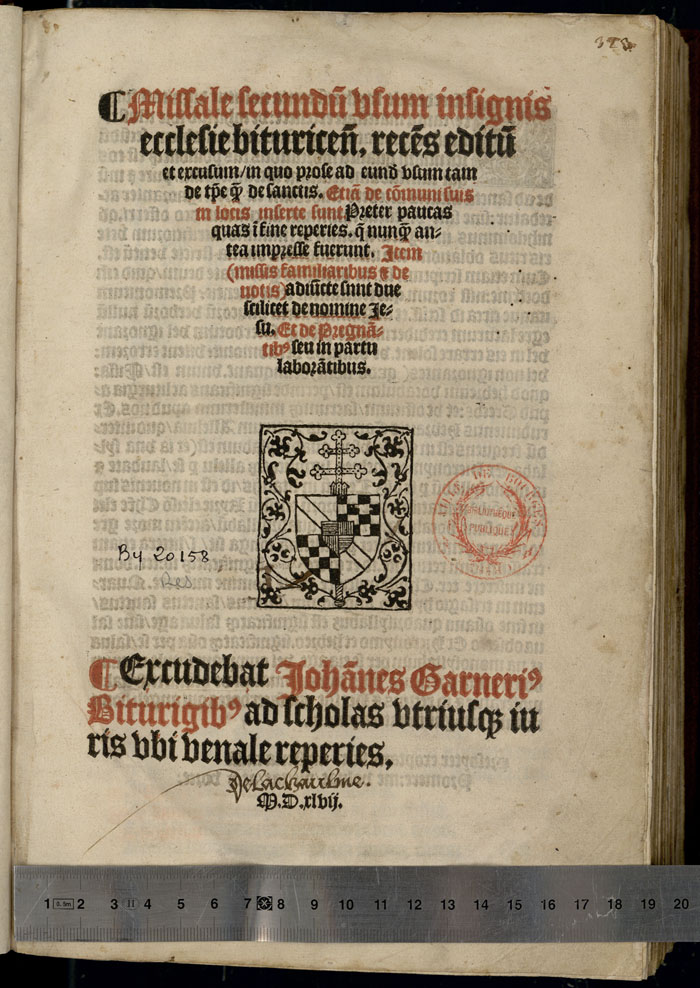 373.
¶ Missale secundũ vsum insignis
ecclesie bituriceñ, recẽs editũ
et excusum/in quo prose ad eund vsum tam
de tp̃e q̃ de sanctis. Etiã de cõmuni suis
in locis inserte sunt Preter paucas
quas ĩ fine reperies. q̃ nunq̃ an-
tea impresse fuerunt. Item
(missis familiaribus ⁊ de
notis) adiũcte sunt due
scilicet de nomine Je-
su. Et de Pregnã-
tibꝰ seu in partu
laborãtibus.
BIBLIOTHEQUE
PUBLIQUE
By 20158
Res
¶ Excudebat Johãnes Garneriꝰ
Biturigibꝰ ad scholas vtriusqꝫ iu
ris vbi venale reperies,
M.D.xlvij.
1 0.5m 2 3 4 5 6 7 8 9 10 11 12 13 14 15 16 17 18 19 20